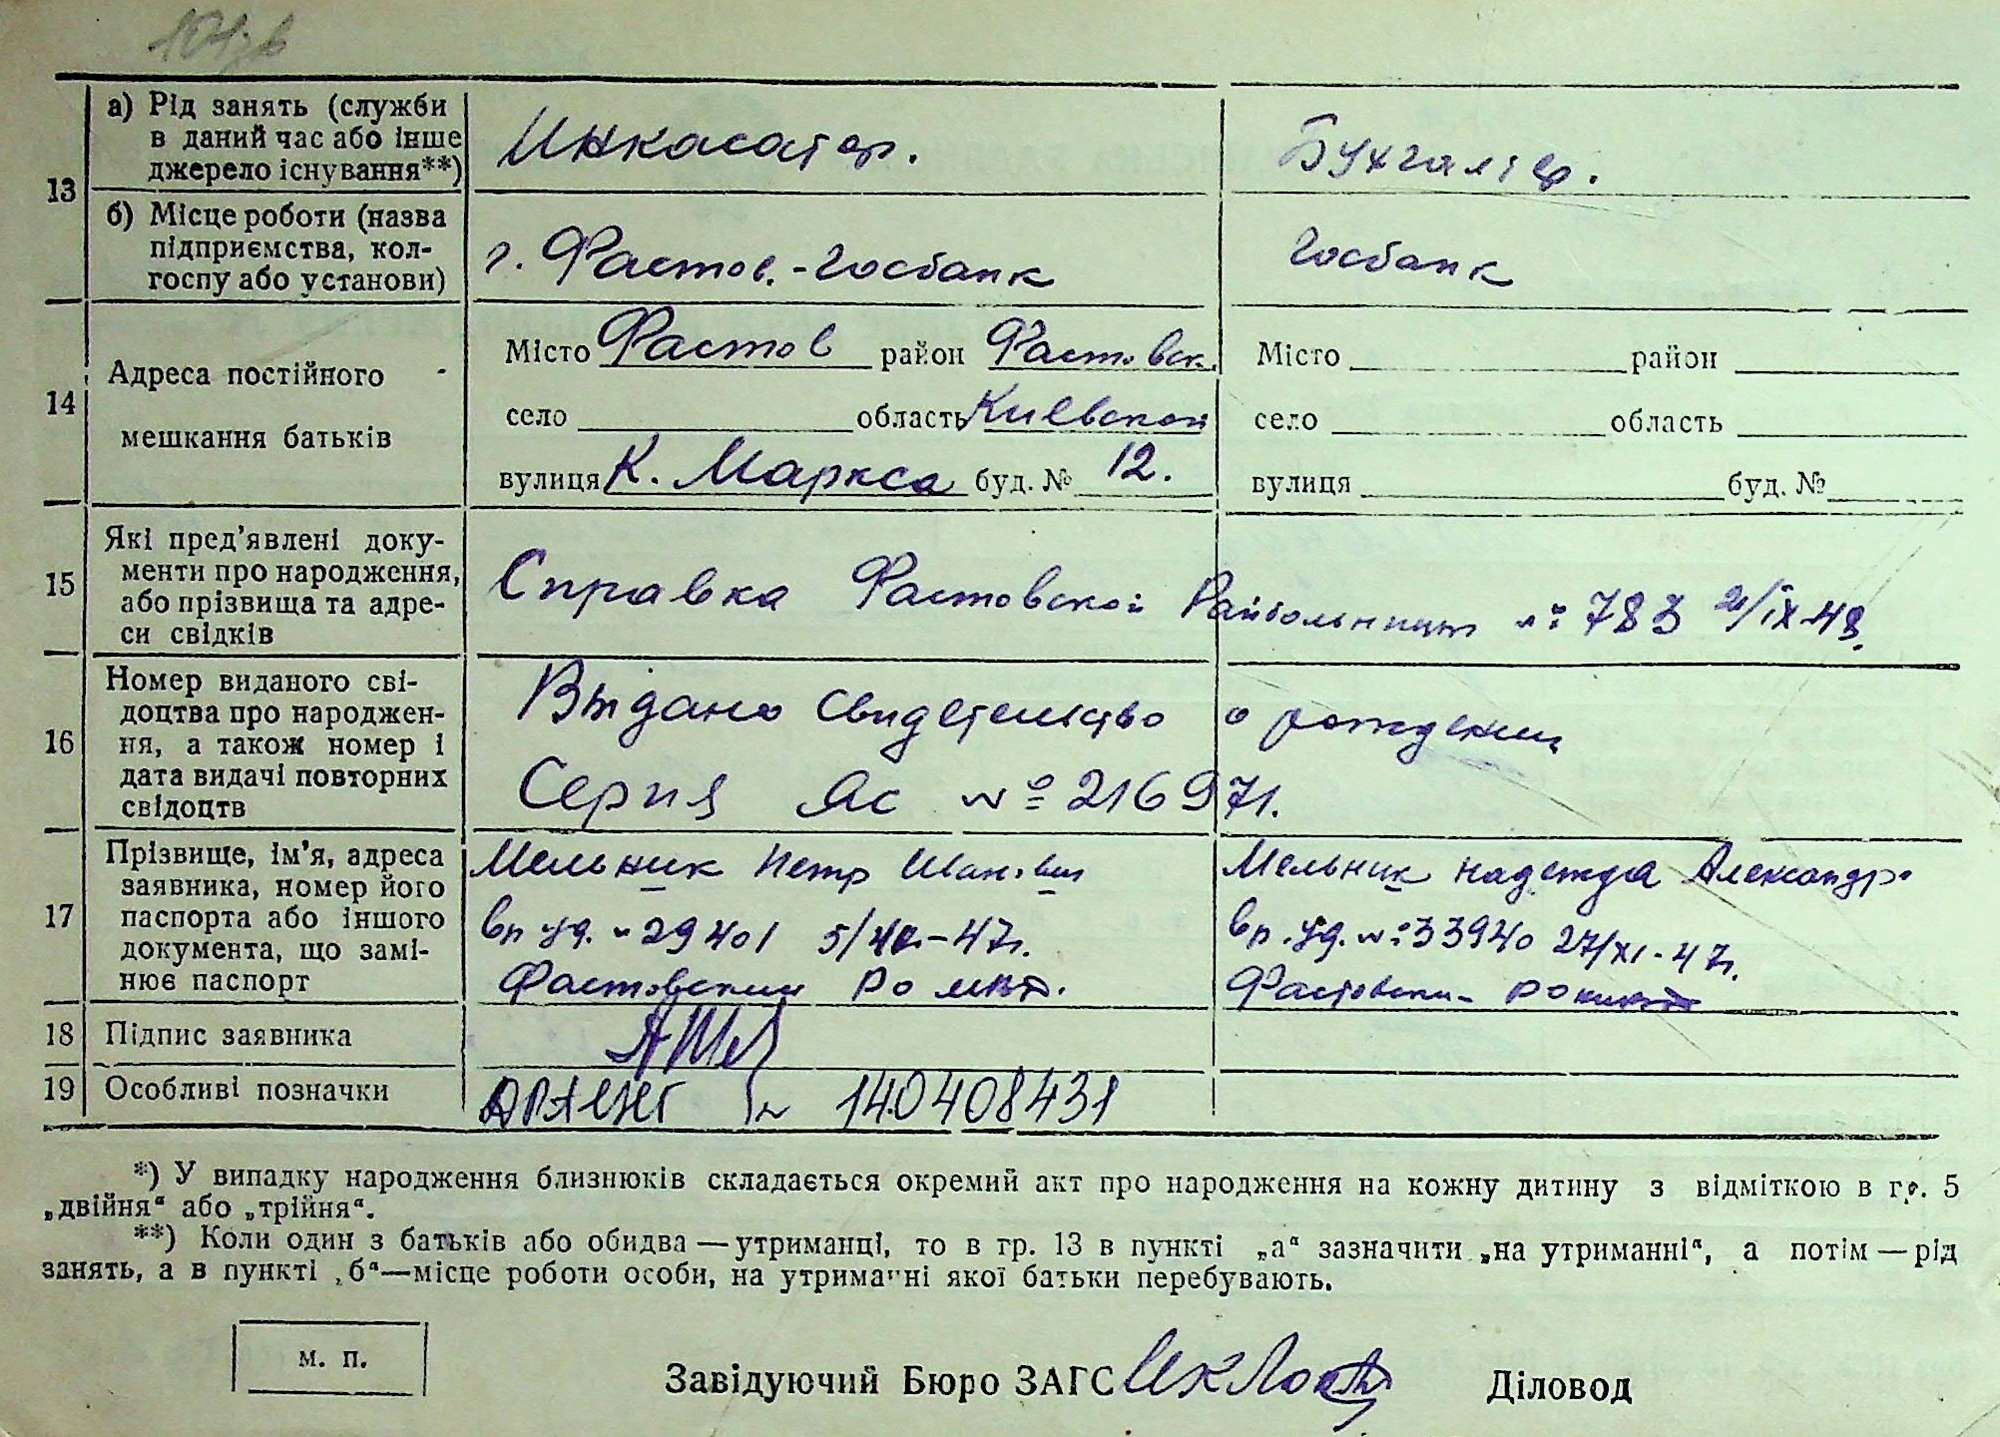 13
а) Рід занять (служби
в даний час або інше
джерело існування**)
Инкасатор.
Бухгалтер.
б) Місце роботи (назва
підприємства, кол-
госпу або установи)
г. Фастов. - Госбанк
Госбанк
14
Адреса постійного
мешкання батьків
Місто Фастов район Фастовск.
село область Киевской
вулиця К. Маркса буд. № 12.
Місто район
село область
вулиця буд. №
15
Які пред’явлені доку-
менти про народження,
або прізвища та адре-
си свідків
Справка Фастовской Райбольницы № 783 /IX-48
16
Номер виданого сві-
доцтва про народжен-
ня, а також номер і
дата видачі повторних
свідоцтв
Выдано свидетельство о рождении
Серия Яс № 216971.
17
Прізвище, ім’я, адреса
заявника, номер його
паспорта або іншого
документа, що замі-
нює паспорт
Мельник Петр Иванович
вр. уд. № 29401 5/ -47г.
Фастовский РО
Мельник Надежда Александр
вр. уд. № 33940 27/XI-47г.
Фастовский РО
18
Підпис заявника
19
Особливі позначки
140408431
*) У випадку народження близнюків складається окремий акт про народження на кожну дитину з відміткою в гр. 5
„двійня“ або „трійня“.
**) Коли один з батьків або обидва — утриманці, то в гр. 13 в пункті „а“ зазначити „на утриманні“, а потім — рід
занять, а в пункті „б“—місце роботи особи, на утриманні якої батьки перебувають.
м. п.
Завідуючий Бюро ЗАГС
Діловод